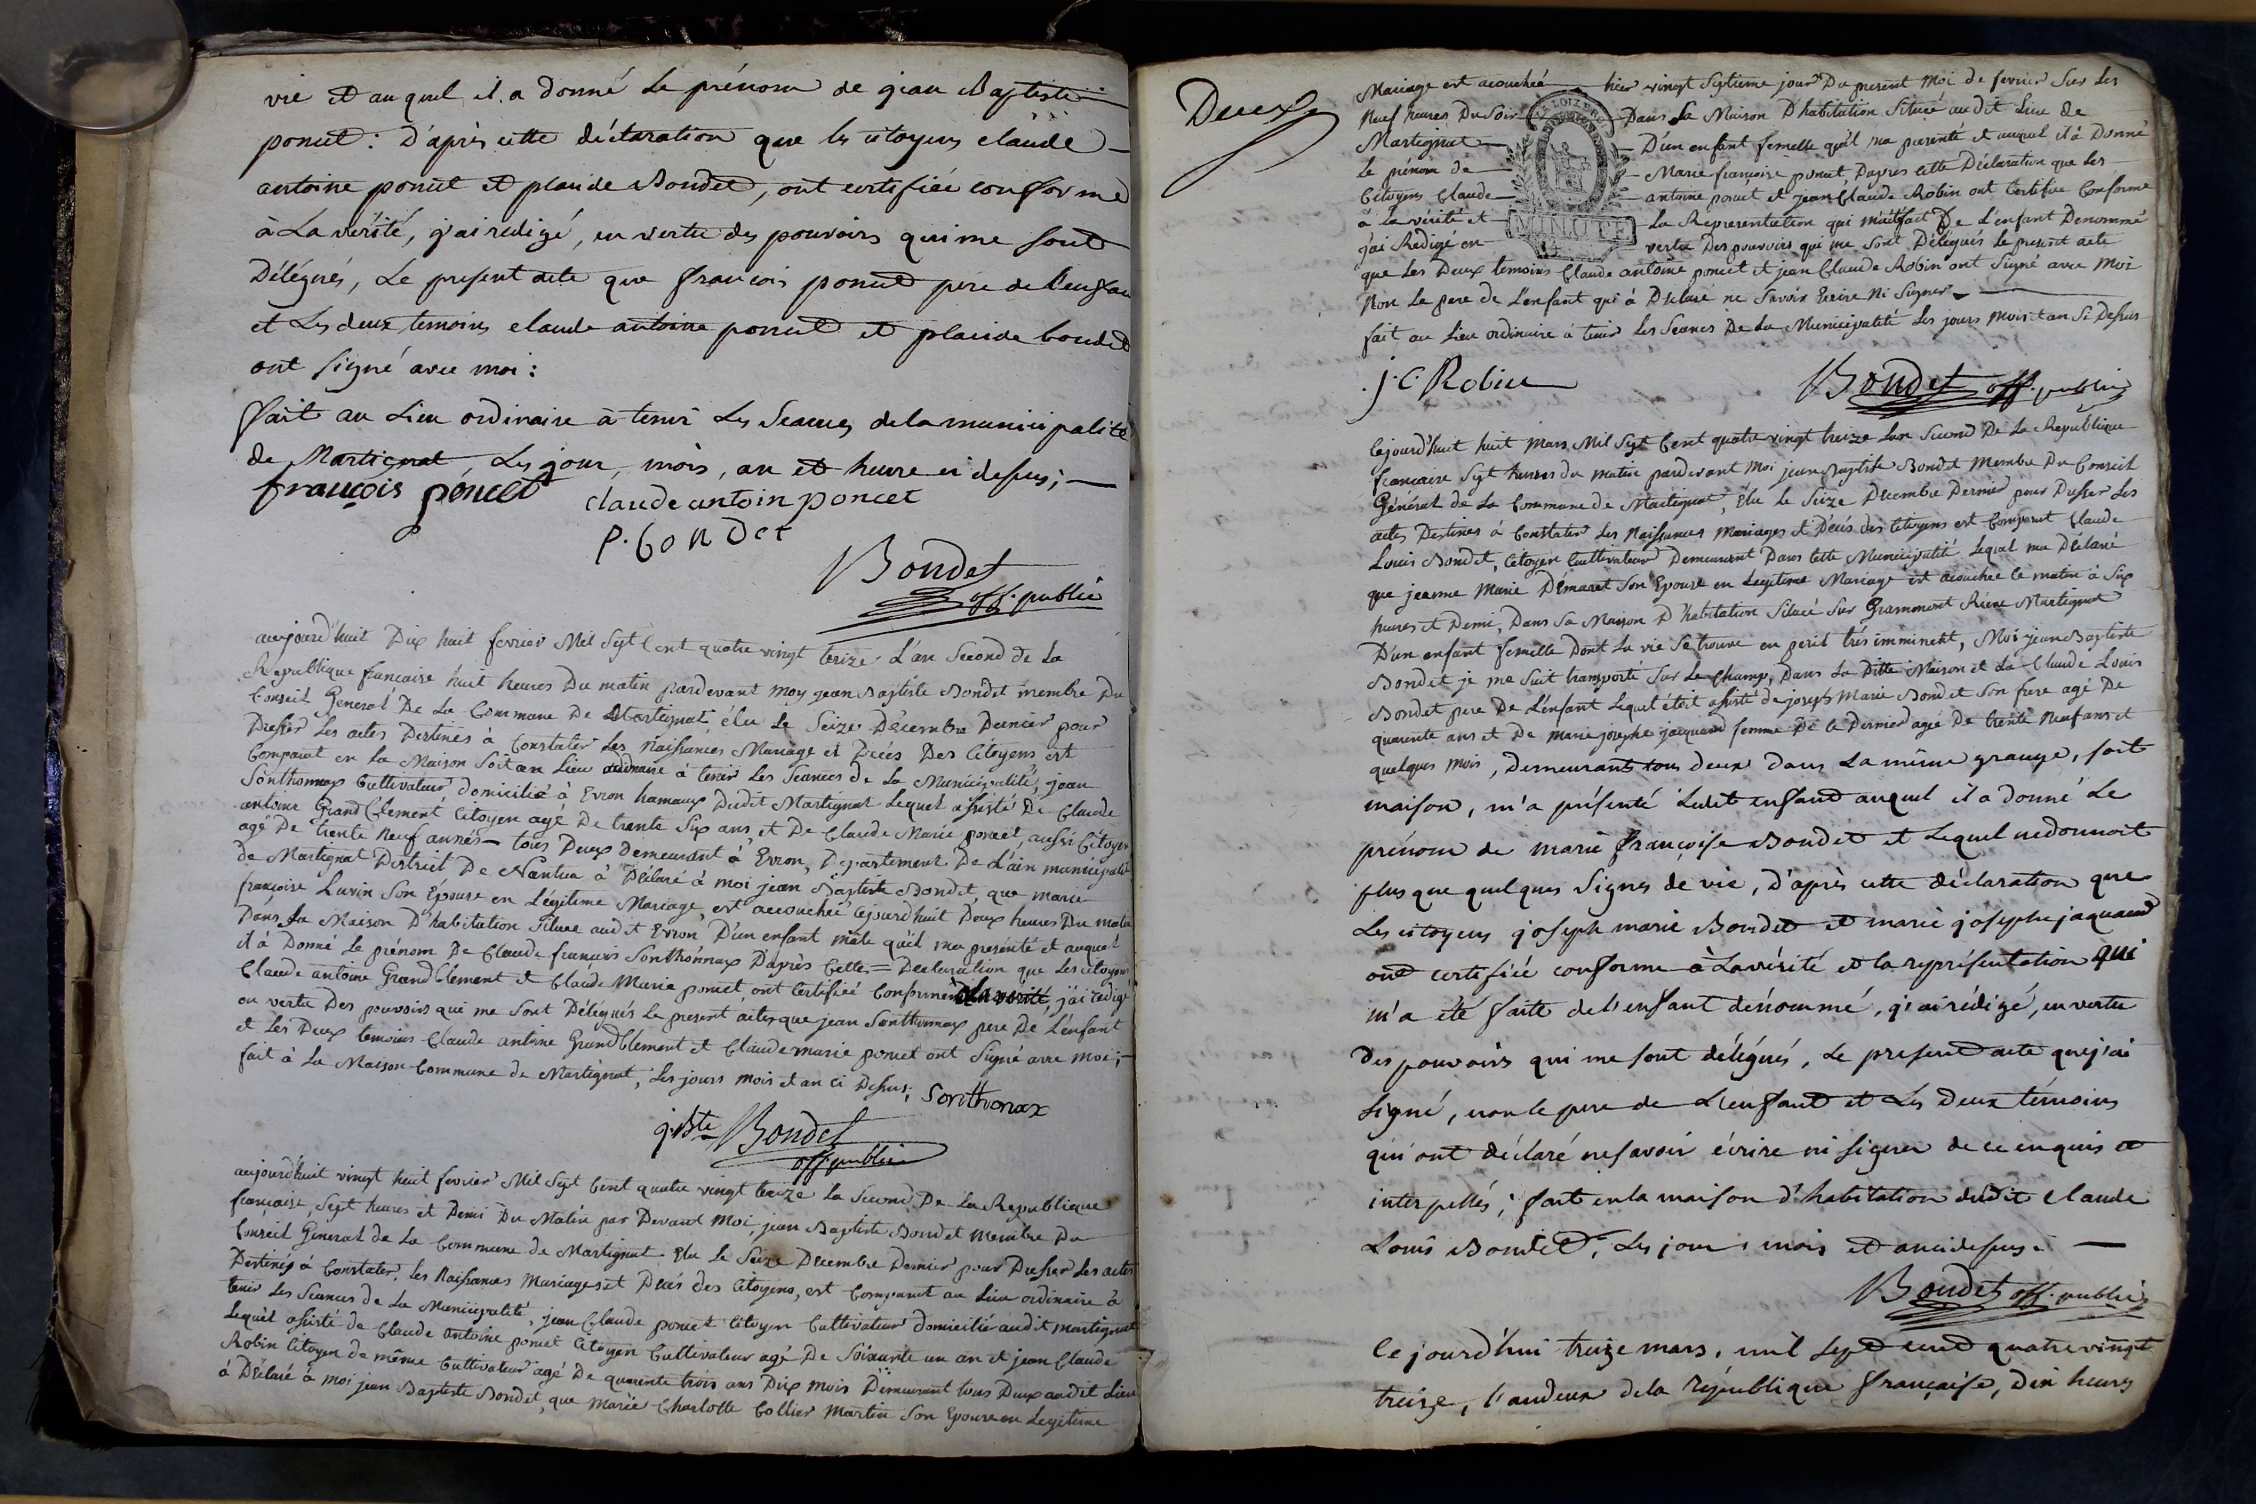 vie et auquel il a donné le prénom de jean Baptiste
poncet : D'après cette déclaration que les citoyens claude
antoine poncet et placide Bondet, ont certifiée conforme
à La vérité, j'ai redigé, en vertu des pouvoirs qui me sont
Délégués, Le present acte que françois poncet pere de l'enfan
et Les deux temoins claude antoine poncet et placide bondet
ont signé avec moi :
fait au Lieu ordinaire à tenir Les Seances de la municipalité
de Martignat, Les jour, mois, an et heure ci dessus ;
françois poncet
claude antoin poncet
p. bondet
Bondet
off. public
aujourd'huit Dix huit fevrier Mil Sept Cent quatre vingt terize L'an Second de La
Republique francaise huit heures Du matin pardevant moy jean Baptiste Bondet membre Du
Conseil General De La Commune De Martignat élu Le Seize Décembre Dernier pour
Dresser Les actes Destinés à Constater Les Naissances Mariage et Décés Des Citoyens est
Comparut en La Maison Soit au Lieu ordinaire à tenir Les Seances de La Municipalité, jean
Sonthonnax Cultivateur domicilié à Evron hameaux Dudit Martignat Lequel assisté De Claude
antoine Grand Clement Citoyen agé De trente Six ans, et De Claude Marie poncet, aussi Citoyen
agé De trente Neuf années tous Deux Demeurant à Evron, Departement De L'ain municipalité
de Martignat District De Nantua à Déclaré à moi jean Baptiste Bondet, que marie
françoise Luvin Son Epouse en Légitime Mariage, est accouchée Cejourd'huit Deux heures Du matin
Dans Sa Maison D'habitation Situee audit Evron D'un enfant mâle qu'il ma presenté et auquel
il à Donné Le prénom De Claude francois Sonthonnax D'aprés Cette = Declaration que Les citoyens
Claude antoine Grand Clement et Claude Marie poncet ont Certifiéé Conforme à La verité, j'ai redigé
en vertu Des pouvoirs qui me Sont Délégués Le present acte que jean Sonthonnax pere De L'enfant
et Les Deux temoins Claude antoine Grand Clement et Claude marie poncet ont Signé avec moi ;
fait à La Maison Commune de Martignat, Les jours mois et an ci Dessus ;
Sonthonax
j. Bte Bondet
off. public
aujourd'huit vingt huit fevrier Mil Sept Cent quatre vingt treize La Second De La Republique
francaise, Sept heures et Demi Du Matin par Devant Moi, jean Baptiste Bondet membre Du
Conseil General de La Commune de Martignat Elu Le Seize Decembre Dernier pour Dresser Les actes
Destinés à Constater, Les Naissances Mariages et Décés des Citoyens, est Comparut au Lieu ordinaire à
tenir Les Séances de La Municipalité, jean Claude poncet Citoyen Cultivateur domicilié audit martignat
Lequel assisté de Claude Antoine poncet Citoyen Cultivateur agé De Soixante un an et jean Claude
Robin Citoyen de même Cultivateur agé De quarente trois ans Dix mois Demeurant tous Deux audit Lieu
à Déclaré à moi jean Baptiste Bondet, que Marie Charlotte Collier Martin Son Epouse en Legitime
Deux
Mariage est acouchéé hier vingt Septieme jour Du present Moi de fevrier Sur Les
Neuf heures Du Soir Dans Sa Maison D'habitation Situeé audit Lieu de
Martignat D'un enfant femelle qu'il ma presenté et auquel il à Donné
Le prénom de Marie françoise poncet D'aprés cette Déclaration que Les
Citoyens Claude antoine poncet et jean Claude Robin ont Certifiee Conforme
à La vérité et La Representation qui m'etait fait De L'enfant Denommé
j'ai Redigé en vertu Des pouvoirs qui me Sont Délégués Le present acte
que Les Deux temoins Claude antoine poncet et jean Claude Robin ont Signé avec Moi
Non Le pere de L'enfant qui à Déclaré ne Savoir Ecrire Ni Signer
fait au Lieu ordinaire à tenir Les Seances De La Municipalité Les jours Mois et an Si Dessus
MINUTE
j. C. Robin
Bondet off. public
Cejourd'huit huit Mars Mil Sept Cent quatre vingt treize Lan Second De La Republique
francaise Sept heures du matin pardevant Moi jean Baptiste Bondet Membre Du Conseil
Général de La Commune de Martignat, Elu Le Seize Decembre Dernier pour Dresser Les
actes Destinés à Constater Les Naissances Mariages et Décés des Citoyens est Comparut Claude
Louis Bondet, Citoyen Cultivateur Demeurant Dans Cette Municipalité Lequel ma Déclaré
que jeanne Marie Démaret Son Epouse en Legitime Mariage est acouchee ce matin à Six
heures et Demi, Dans Sa Maison D'habitation Situeé Sur Grammont Riere Martignat
D'un enfant femelle Dont La vie Se trouve en peril trés imminent, Moi jean Baptiste
Bondet je me Suit transporté Sur Le Champ, Dans La Ditte Maison et La Claude Louis
Bondet pere De L'enfant Lequel étoit assisté de joseph Marie Bondet Son frere agé De
quarente ans et De marie josephe jacquand femme De Ce Dernier agée De trente Neuf ans et
quelques Mois, Demeurant tous deux dans La même grange, soit
maison, m'a présenté Ledit enfant auquel il a donné Le
prénom de marie françoise Bondet et Lequel ne donnoit
plus que quelques signes de vie, d'après cette déclaration que
Les citoyens joseph marie Bondet et marie josephe jaquand
ont certifiée conforme à La vérité et la représentation qui
m'a été faite de l'enfant dénommé, j'ai rédigé, en vertu
des pouvoirs qui me sont délégués, Le present acte que j'ai
signé, non le pere de L'enfant et Les deux témoins
qui ont déclaré ne savoir écrire ni signer de ce enquis et
interpellés ; fait en la maison d'habitation dudit claude
Louis Bondet, Les jour, mois et an ci dessus.
Bondet off. public
Ce jourd'hui treize mars, mil sept cent quatre vingt
treize, l'an deux de la République française, dix heures